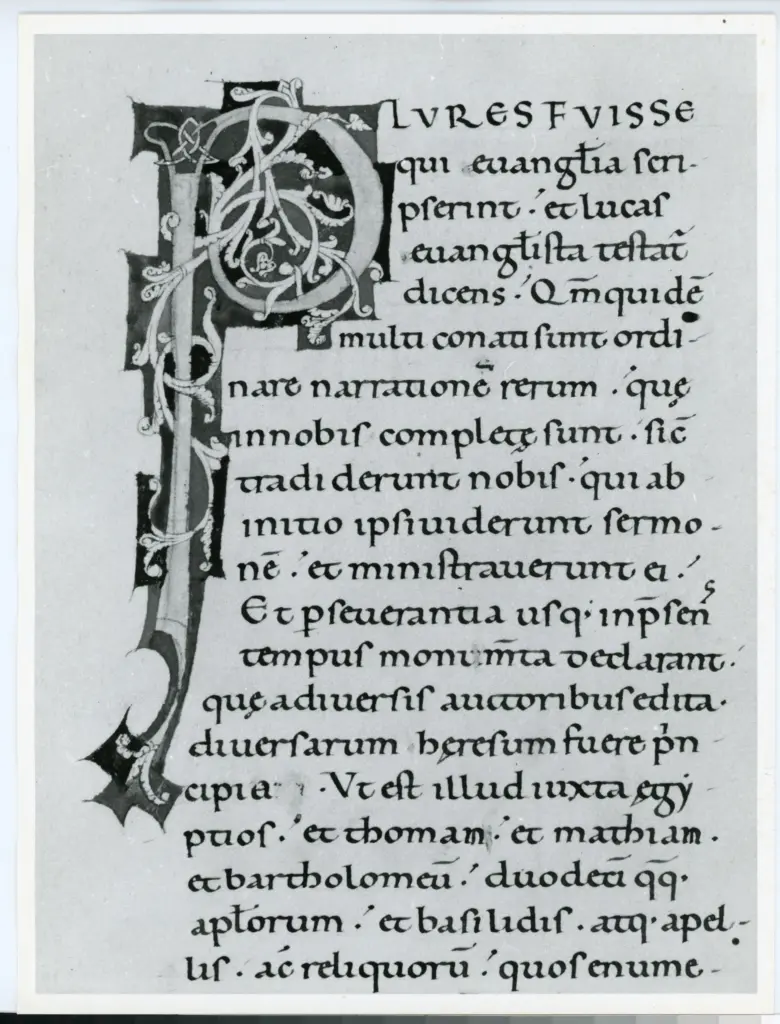 PLVRES FVISSE
qui euangl̄ia scri-
pserunt · et lucas
euangl̄ista testat̄
dicens · Qm̄ quidē
multi conati sunt ordi-
nare narrationē rerum · quę
in nobis completę sunt · sic̄
tradiderunt nobis · qui ab
initio ipsi uiderunt sermo-
nē · et ministrauerunt ei ·
Et ꝑseuerantia usq· inp̄sens
tempus monum̄ta declarant ·
quę a diuersis auctoribus edita ·
diuersarum hęresum fuere pͥn
cipia · Vt est illud iuxta ęgy
ptios · et thomam · et mathiam ·
et bartholomeū · duodeci̅ qq̄·
apl̄orum · et basilidis · atq· apel-
lis · ac̄ reliquorū · quos enume-